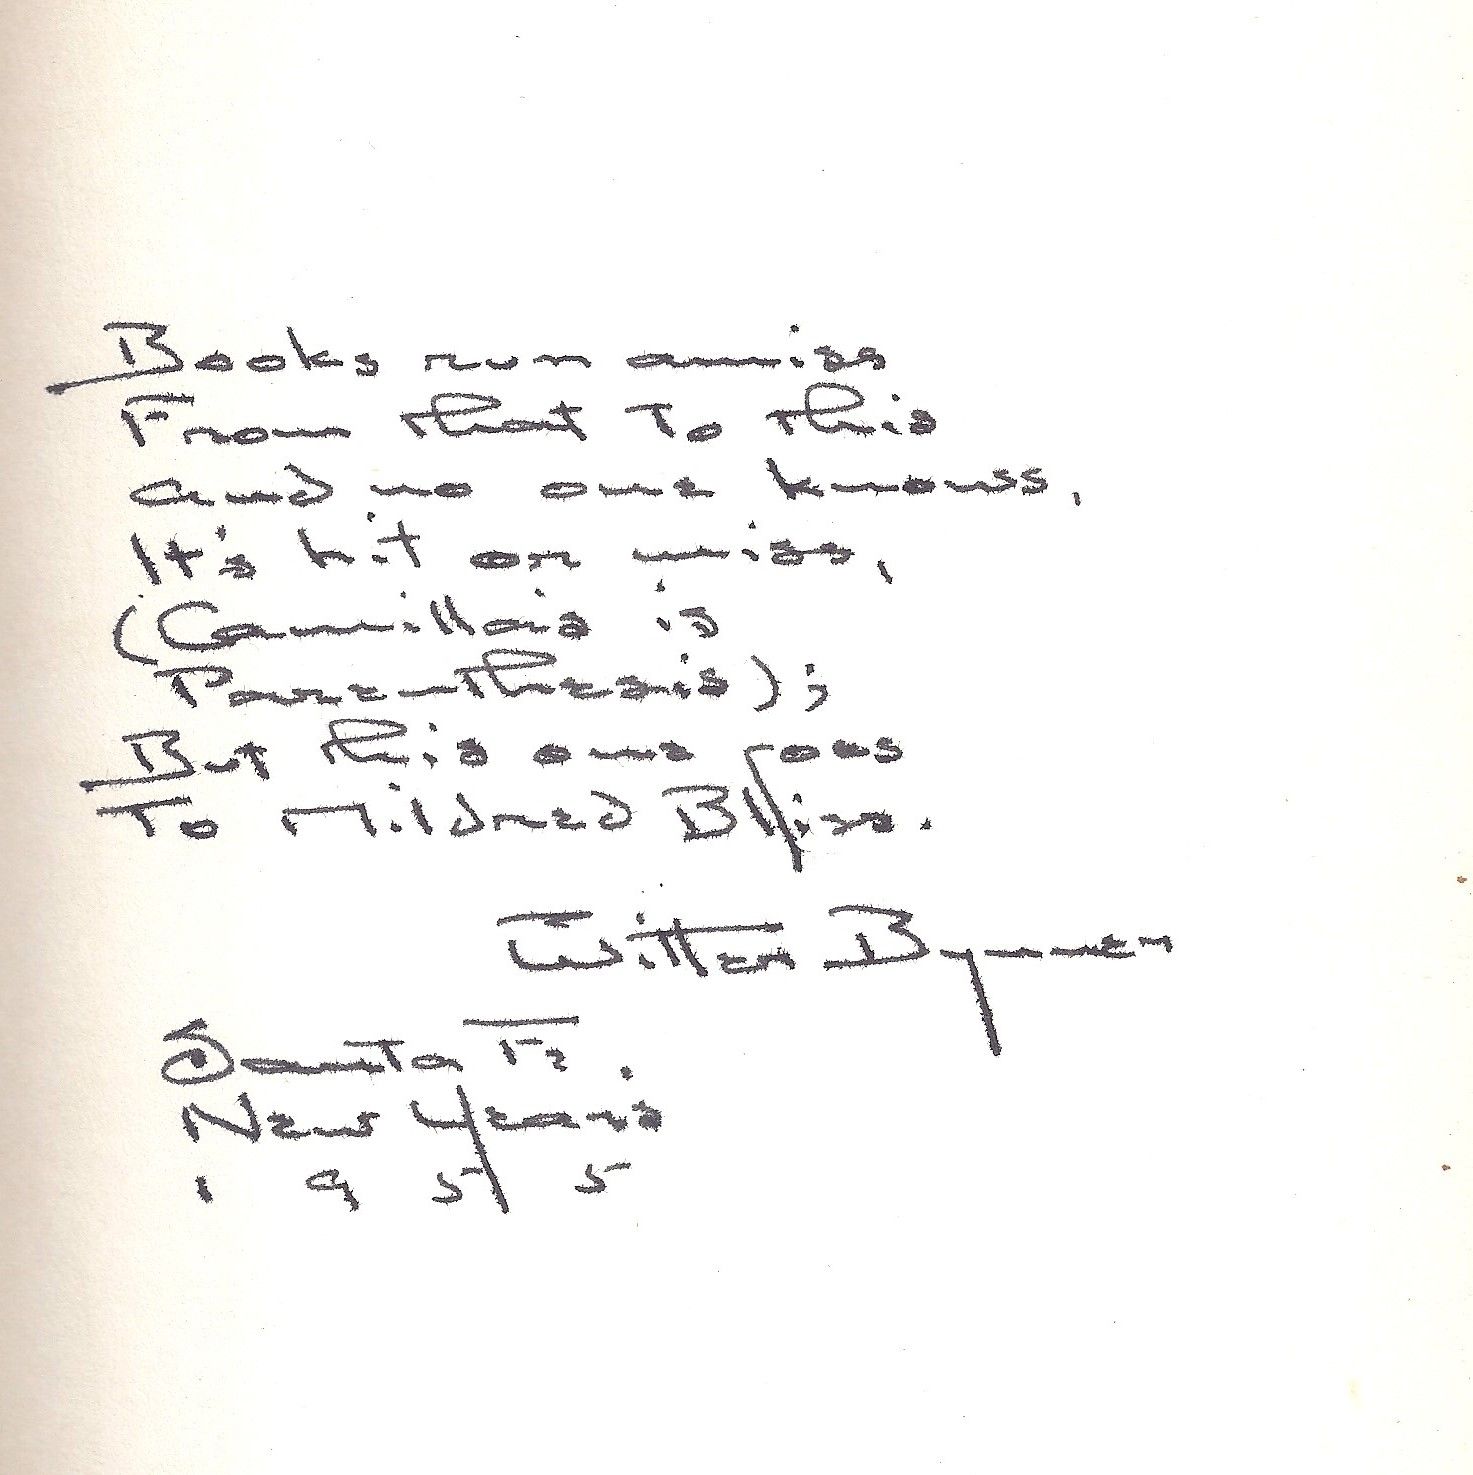 Books run amiss
From that to this
and no one knows,
It's hit or miss,
(Camilla is is
Parenthesis);
But this one goes
To Mildred Bliss.
Witter Bynner
Santa Fe.
New Years
1955